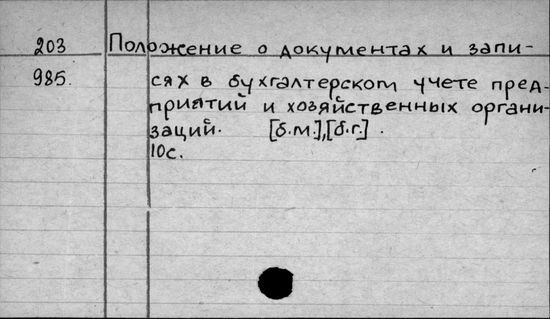 203 Положение о документах и запи-
985. сях в бухгалтерском учете пред-
приятий и хозяйственных органи-
заций. [б.м.],[б.г.].
10с.